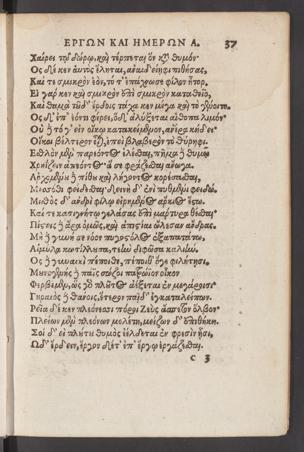 ΕΡΓΩΝ ΚΑΙ ΗΜΕΡΩΝ Α. 37
Χαίρει τῷ δώρῳ, καὶ τέρπεται ὃν κατὰ θυμόν·
Ος δέ κεν αὐτὸς ἕληται, ἀναιδείηφι πιθήσας,
Καί τε σμικρὸν ἐὸν, τό τ' ἐπάχνωσε φίλον ἦτορ.
Εἰ γάρ κεν καὶ σμικρὸν ἐπὶ σμικρῷ καταθεῖο,
Καὶ θαμὰ τοῦδ' ἔρδοις τάχα κεν μέγα καὶ τὸ γένοιτο.
Ος δ' ἐπ' ἐόντι φέρει, ὁ δ' ἀλύξεται αἴθοπα λιμόν·
Οὐ δὲ τό γ' εἰν οἴκῳ κατακείμενον, ἀνέρα κήδει·
Οἴκοι βέλτερον εἶναι, ἐπεὶ βλαβερὸν τὸ θύρηφι.
Εσθλὸν μὲν παρεόντος ἑλέσθαι, πῆμα δὲ θυμῷ
Χρηΐζειν ἀπεόντος· ἅ σε φράζεσθαι ἄνωγα.
Αρχομένου δὲ πίθου καὶ λήγοντος κορέσασθαι,
Μεσσόθι φείδεσθαι· δεινὴ δ' ἐνὶ πυθμένι φειδώ.
Μισθὸς δ' ἀνδρὶ φίλῳ εἰρημένος ἄρκιος ἔστω.
Καί τε κασιγνήτῳ γελάσας ἐπὶ μάρτυρα θέσθαι·
Πίστεις δ' ἄρα ὁμῶς, καὶ ἀπιστίαι ὤλεσαν ἄνδρας.
Μὴ δὲ γυνή σε νόον πυγοστόλος ἐξαπατάτω,
Αἱμύλα κωτίλλουσα, τεὴν διφῶσα καλιήν.
Ος δὲ γυναικὶ πέποιθε, πέποιθ' ὅγε φιλήτῃσι.
Μουνογενὴς δὲ πάϊς σώζοι πατρώϊον οἶκον
Φερβέμεν, ὣς γὰρ πλοῦτος ἀέξεται ἐν μεγάροισι·
Γηραιὸς δὲ θάνοις, ἕτερον παῖδ' ἐγκαταλείπων.
Ρεῖα δέ κεν πλεόνεσσι πόροι Ζεὺς ἄσπετον ὄλβον·
Πλείων μὲν πλεόνων μελέτη, μείζων δ' ἐπιθήκη.
Σοὶ δ' εἰ πλούτου θυμὸς ἐέλδεται ἐν φρεσὶν ᾗσι,
Ωδ' ἔρδειν, ἔργον δέ τ' ἐπ' ἔργῳ ἐργάζεσθαι.
C 3